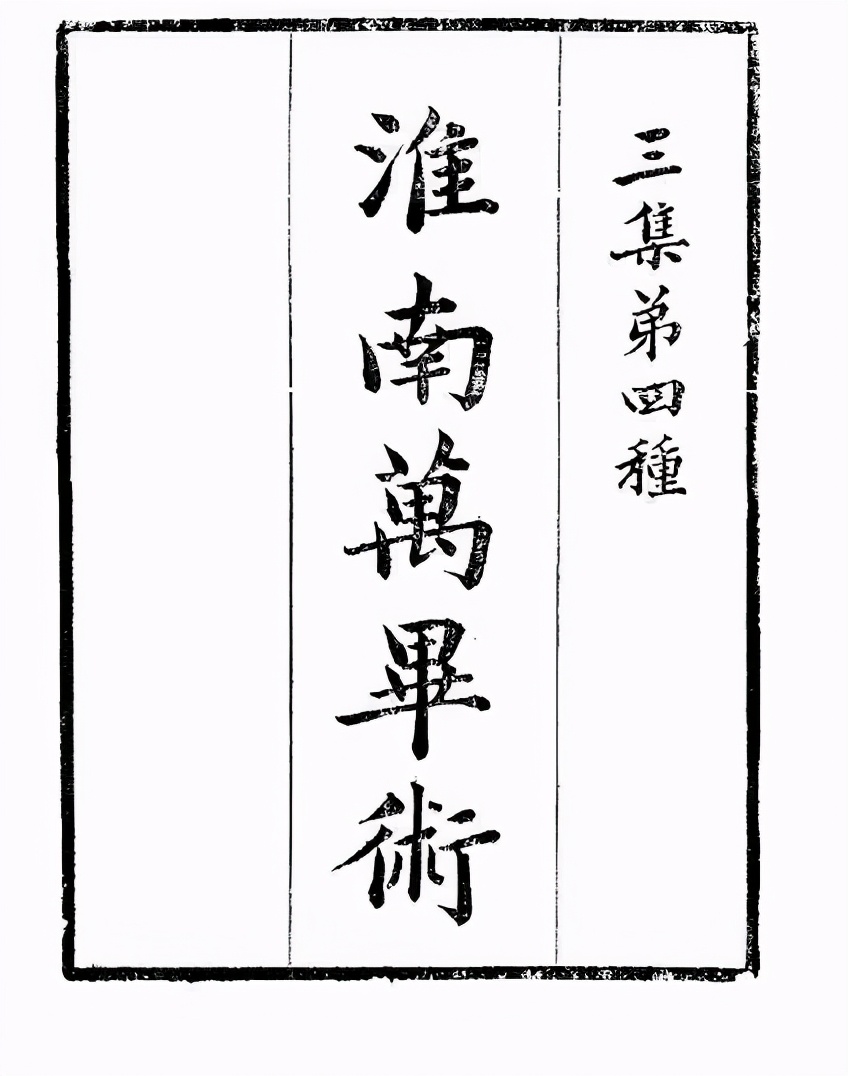 三集弟四種
淮南萬畢術